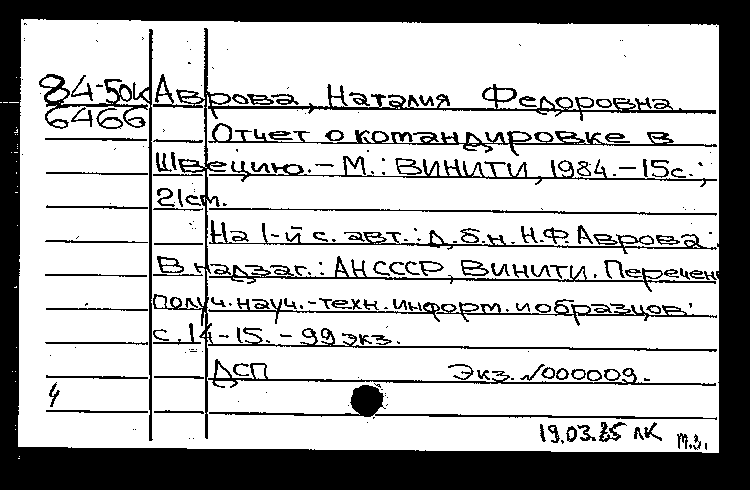 84-50к Аврова, Наталия Федоровна.
6466
Отчет о командировке в
Швецию. – М.: ВИНИТИ, 1984. – 15с.;
21см.
На 1-й с. авт.: д.б.н. Н.Ф. Аврова.
В надзаг.: АН СССР, ВИНИТИ. Перечень
получ. науч.-техн. информ. и образцов:
с. 14-15. – 99 экз.
ДСП Экз. №000009.
4
19.03.85 лк